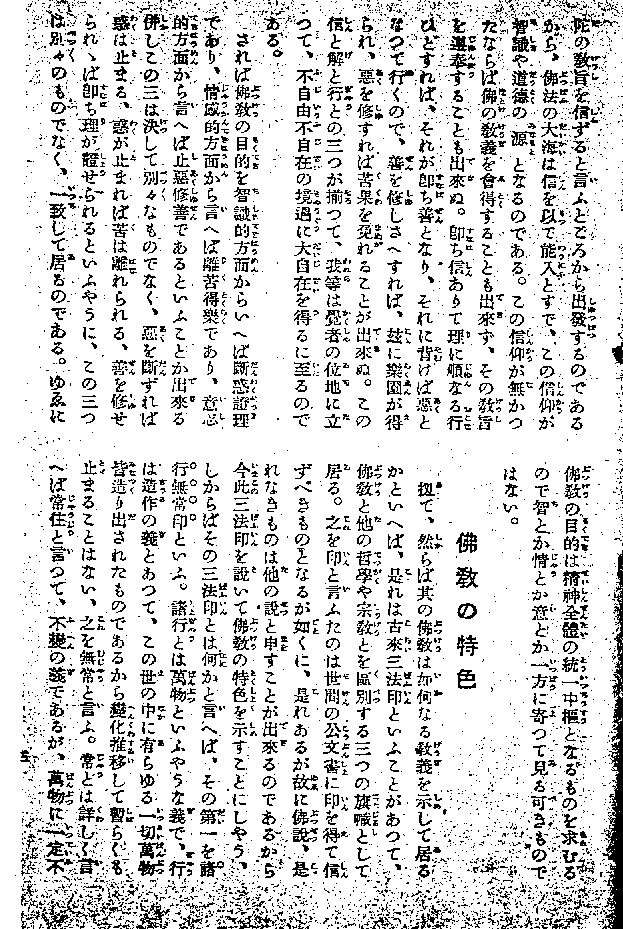 陀の教旨を信ずると言ふところから出發するのである
から、佛法の大海は信を以て能入とすで、この信仰が
智識や道德の源となるのである。この信仰が無かつ
たならば佛の教義を會得することも出來ず、その教旨
を遵奉することも出來ぬ。卽ち信ありて理に順なる行
ひとすれば、それが卽ち善となり、それに背けば惡と
なつて行くので、善を修しさへすれば、玆に樂園が得
られ、惡を修すれば苦果を免れることが出來ぬ。この
信と解と行との三つが揃つて、我等は覺者の位地に立
つて、不自由不自在の境遇に大自在を得るに至るので
ある。
されば佛教の目的を智識的方面からいへば斷惑證理
であり、情感的方面から言へば離苦得樂であり、意志
的方面から言へば止惡修善であるといふことが出來る
併しこの三は決して別々なものでなく、惡を斷ずれば
惑は止まる、惑が止まれば苦は離れられる、善を修せ
られゝば卽ち理が證せられるといふやうに、この三つ
は別々のものでなく、一致して居るものである。ゆゑに
佛教の目的は精神全體の統一中樞となるものを求むる
ので智とか情とか意とか一方に寄つて見る可きもので
はない。
佛教の特色
扨て、然らば其の佛教は如何なる教義を示して居る
かといへば、是れは古來三法印といふことがあつて、
佛教と他の哲學や宗教とを區別する三つの旗幟として
居る。之を印と言ふたのは世間の公文書に印を得て信
ずべきものとなるが如くに、是れあるが故に佛說、是
れなきものは他の說と申すことが出來るのであるから
今此三法印を說いて佛教の特色を示すことにしやう、
しからばその三法印とは何かと言へば、その第一を諸
行無常印といふ。諸行とは萬物といふやうな義で、行
は造作の義とあつて、この世の中に有らゆる一切萬物
皆造り出されたものであるから變化推移して暫らくも
止まることはない、之を無常と言ふ。常とは詳しく言
へば常住と言つて、不變の義であるが、萬物に一定不